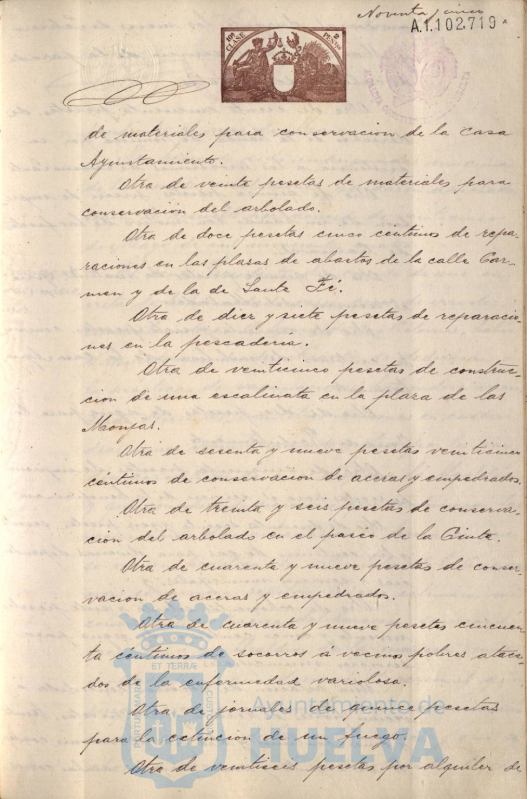 Noventa y cinco
A.1.102.719
10ª CLASE
2 PESETAS
de materiales para conservacion de la Casa
Ayuntamiento.
Otra de veinte pesetas de materiales para
conservacion del arbolado.
Otra de doce pesetas cinco céntimos de repa-
raciones en las plazas de abastos de la calle Car-
men y de la de Santa Fé.
Otra de diez y siete pesetas de reparacio-
nes en la pescadería.
Otra de veinticinco pesetas de construc-
cion de una escalinata en la plaza de las
Monjas.
Otra de sesenta y nueve pesetas veinticinco
céntimos de conservacion de aceras y empedrados.
Otra de treinta y seis pesetas de conserva-
cion del arbolado en el paseo de la Cinta.
Otra de cuarenta y nueve pesetas de conser-
vacion de aceras y empedrados.
Otra de cuarenta y nueve pesetas cincuen-
ta céntimos de socorros á vecinos pobres ataca-
dos de la enfermedad variolosa.
Otra de jornales de quince pesetas
para la estincion de un fuego.
Otra de veintiseis pesetas por alquiler de
ET TERRÆ
PORTUS MARIS
Ayuntamiento de
HUELVA